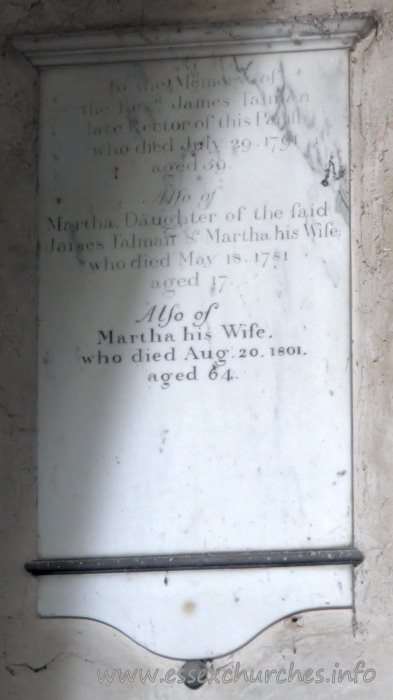 To the Memory of
the Revd. James Talman
late Rector of this Parish
who died July 29. 1791
aged 59.
Also of
Martha, Daughter of the ſaid
James Talman & Martha his Wife,
who died May 18. 1781
aged 17.
Also of
Martha his Wife.
who died Aug. 20. 1801.
aged 64.
www.essexchurches.info